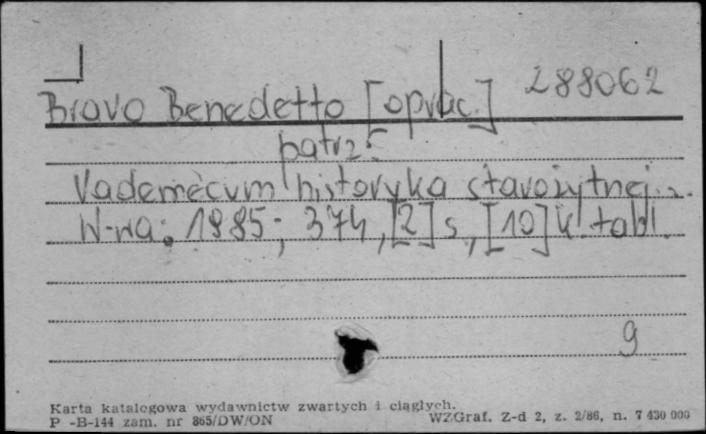 Bravo Benedetto [oprac.] 288062
patrz:
Vademecum historyka starożytnej...
W-wa: 1985; 374, [2] s, [10] k. tabl.
9
Karta katalogowa wydawnictw zwartych i ciągłych.
P -B-144 zam. nr 865/DW/ON WZGraf. Z-d 2, z. 2/86, n. 7 430 000